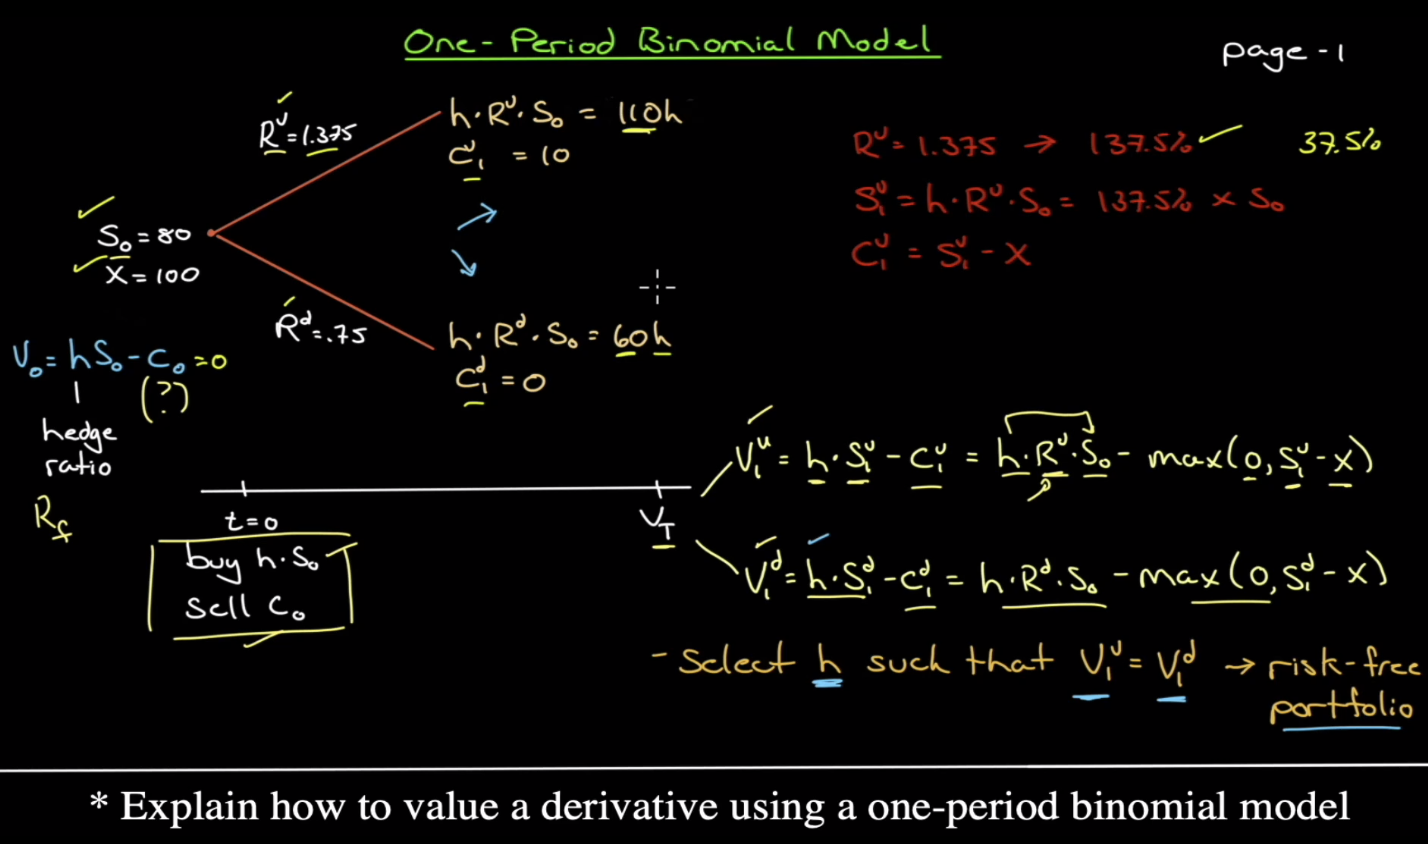 One-Period Binomial Model
page-1
Rᵁ=1.375
h·Rᵁ·S₀ = 110h
C₁ᵁ = 10
Rᵁ = 1.375 → 137.5% 37.5%
S₁ᵁ = h·Rᵁ·S₀ = 137.5% × S₀
C₁ᵁ = S₁ᵁ - X
S₀=80
X=100
Rᵈ=.75
h·Rᵈ·S₀ = 60h
C₁ᵈ = 0
V₀=hS₀-C₀=0
(?)
hedge
ratio
R_f
t=0
V_T
buy h·S₀
sell C₀
V₁ᵘ = h·S₁ᵁ - C₁ᵁ = h·Rᵁ·S₀ - max(0, S₁ᵁ-X)
V₁ᵈ = h·S₁ᵈ - C₁ᵈ = h·Rᵈ·S₀ - max(0, S₁ᵈ-X)
- Select h such that V₁ᵁ = V₁ᵈ → risk-free
portfolio
* Explain how to value a derivative using a one-period binomial model